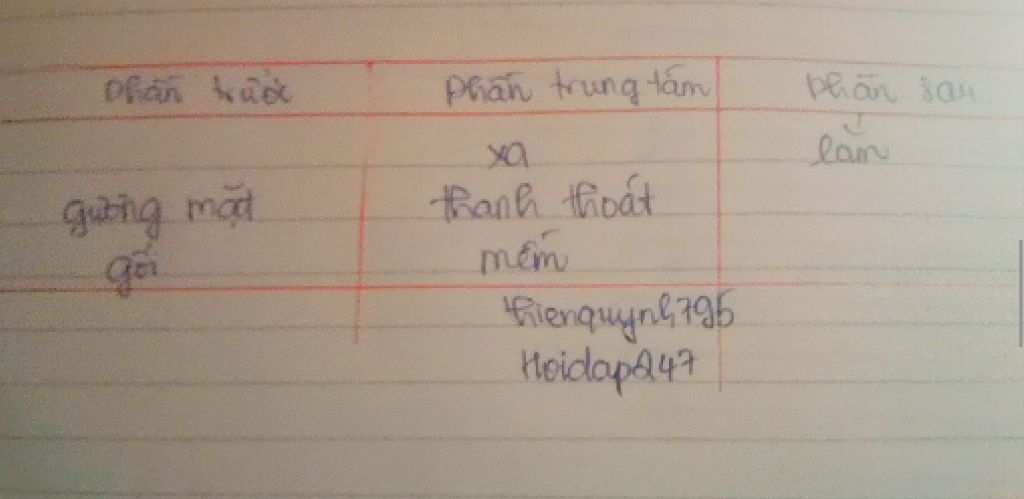 phần trước phần trung tâm phần sau
xa lắm
gương mặt thanh thoát
gối mềm
thienquynh795
Hoidap247